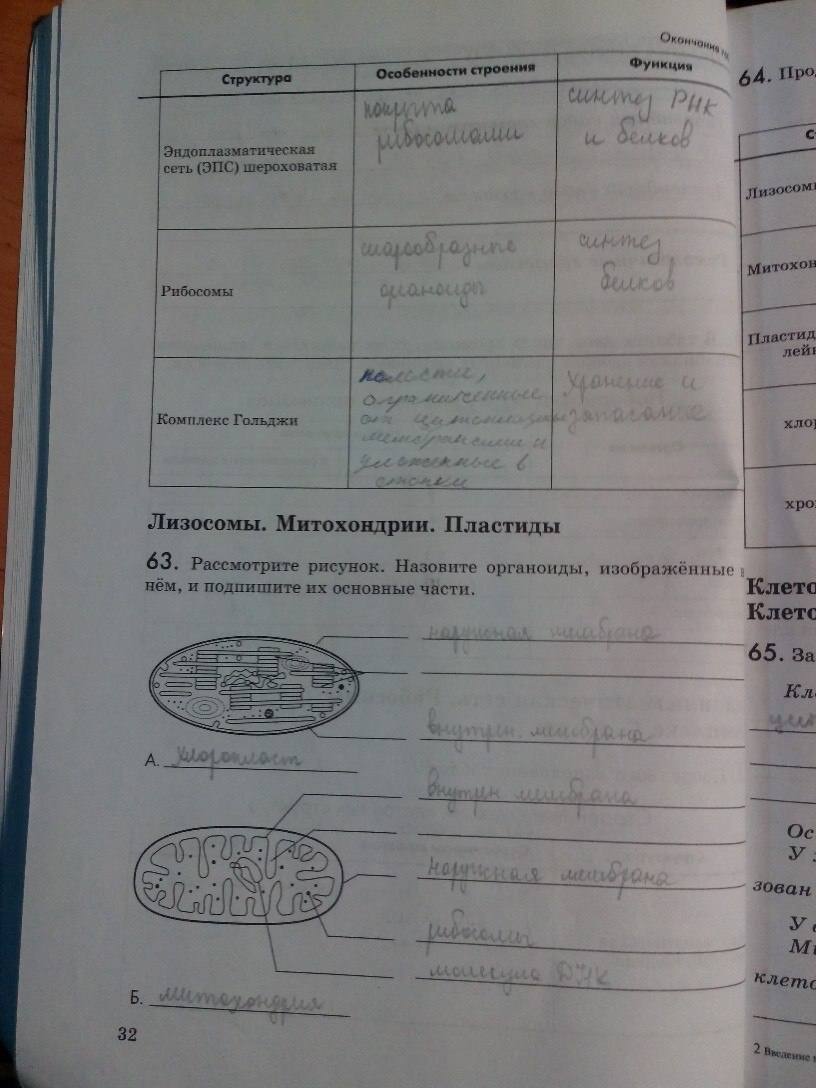 Окончание
Структура
Особенности строения
Функция
Эндоплазматическая
сеть (ЭПС) шероховатая
покрыта
рибосомами
синтез РНК
и белков
Рибосомы
шарообразные
органоиды
синтез
белков
Комплекс Гольджи
полости,
ограниченные
от цитоплазмы
мембранами и
уложенные в
стопки
хранение и
запасание
Лизосомы. Митохондрии. Пластиды
63. Рассмотрите рисунок. Назовите органоиды, изображённые
нём, и подпишите их основные части.
наружная мембрана
внутрен. мембрана
А. хлоропласт
внутрен мембрана
наружная мембрана
рибосомы
молекула ДНК
Б. митохондрия
32
64. Про
С
Лизосом
Митохон
Пластид
лей
хло
хро
Клето
Клето
65. За
Кл
цит
Ос
У
зован
У
М
клет
2 Введение